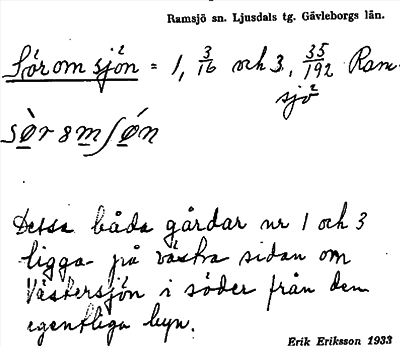 Ramsjö sn. Ljusdals tg. Gävleborgs län.
Sörom sjön = 1, 3/16 och 3, 35/192 Ram-
sjö²
sø̀r 8m ʃǿn
Dessa båda gårdar nr 1 och 3
ligga på västra sidan om
Västersjön i söder från den
egentliga byn.
Erik Eriksson 1933